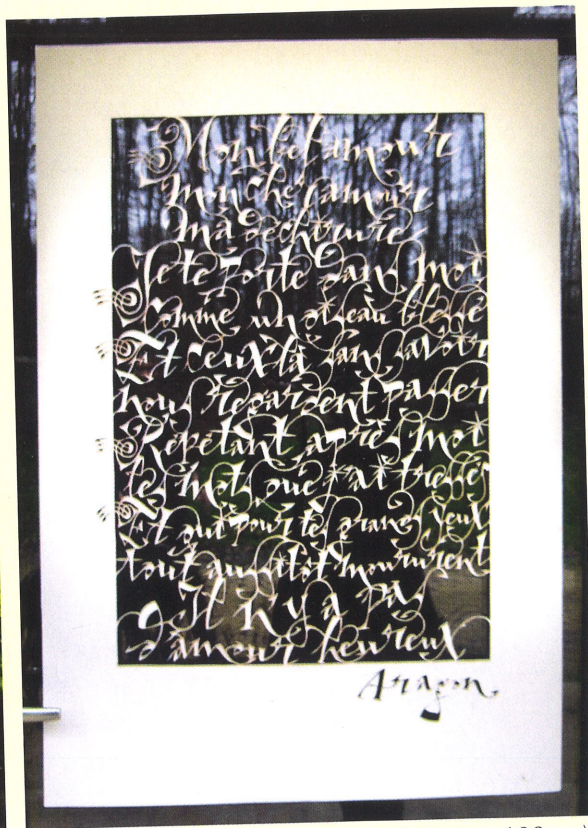 Mon bel amour
mon cher amour
ma déchirure
Je te porte dans moi
Comme un oiseau blessé
Et ceux-là sans savoir
nous regardent passer
Répétant après moi
les mots que j'ai tressés
Et qui pour tes grands yeux
tout aussitôt moururent
Il n'y a pas
d'amour heureux
Aragon